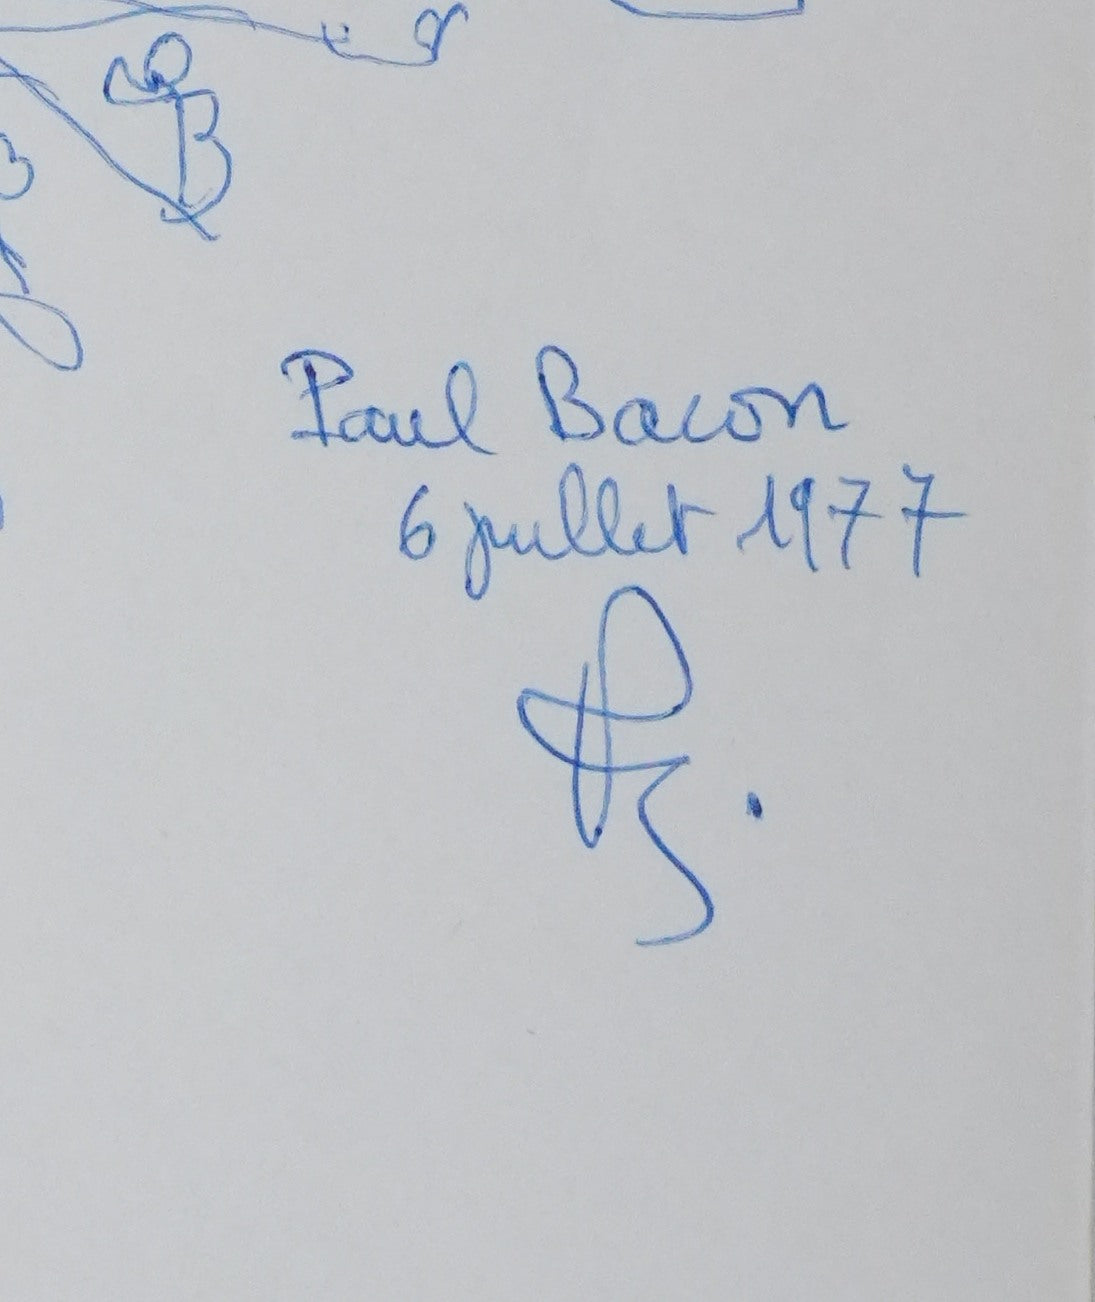 B
Paul Bacon
6 juillet 1977